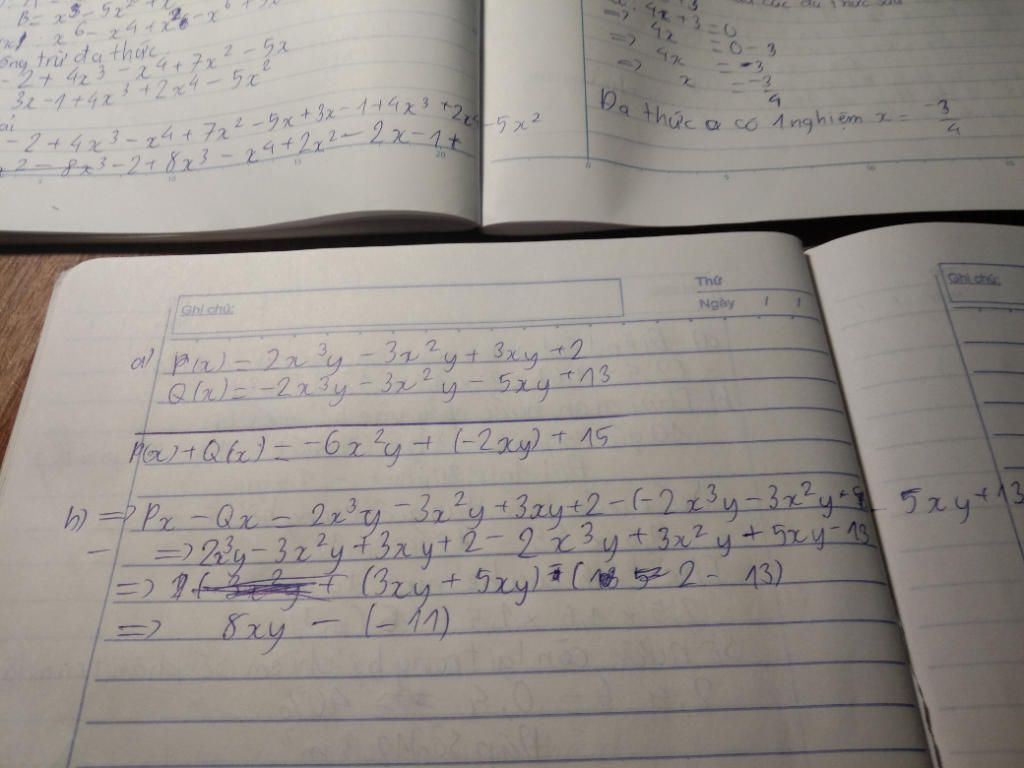 B = x³ - 5x²
x⁶ - x⁴ + x² - x⁶ +
trừ đa thức
- 2 + 4x³ - x⁴ + 7x² - 5x
3x - 1 + 4x³ + 2x⁴ - 5x²
- 2 + 4x³ - x⁴ + 7x² - 5x + 3x - 1 + 4x³ + 2x⁴ - 5x²
x² = 8x³ - 2 + 8x³ - x⁴ + 2x² - 2x - 1 +
4x + 3 = 0
=> 4x = 0 - 3
=> 4x = -3
=> x = -3/4
Đa thức a có 1 nghiệm x = -3/4
Ghi chú:
Thứ
Ngày / /
Ghi chú:
a) P(x) = 2x³y - 3x²y + 3xy + 2
Q(x) = -2x³y - 3x²y - 5xy + 13
P(x) + Q(x) = -6x²y + (-2xy) + 15
b) => Px - Qx = 2x³y - 3x²y + 3xy + 2 - (-2x³y - 3x²y - 5xy + 13
- => 2x³y - 3x²y + 3xy + 2 - 2x³y + 3x²y + 5xy - 13
=> + (3xy + 5xy) - ( 2 - 13)
=> 8xy - (-11)